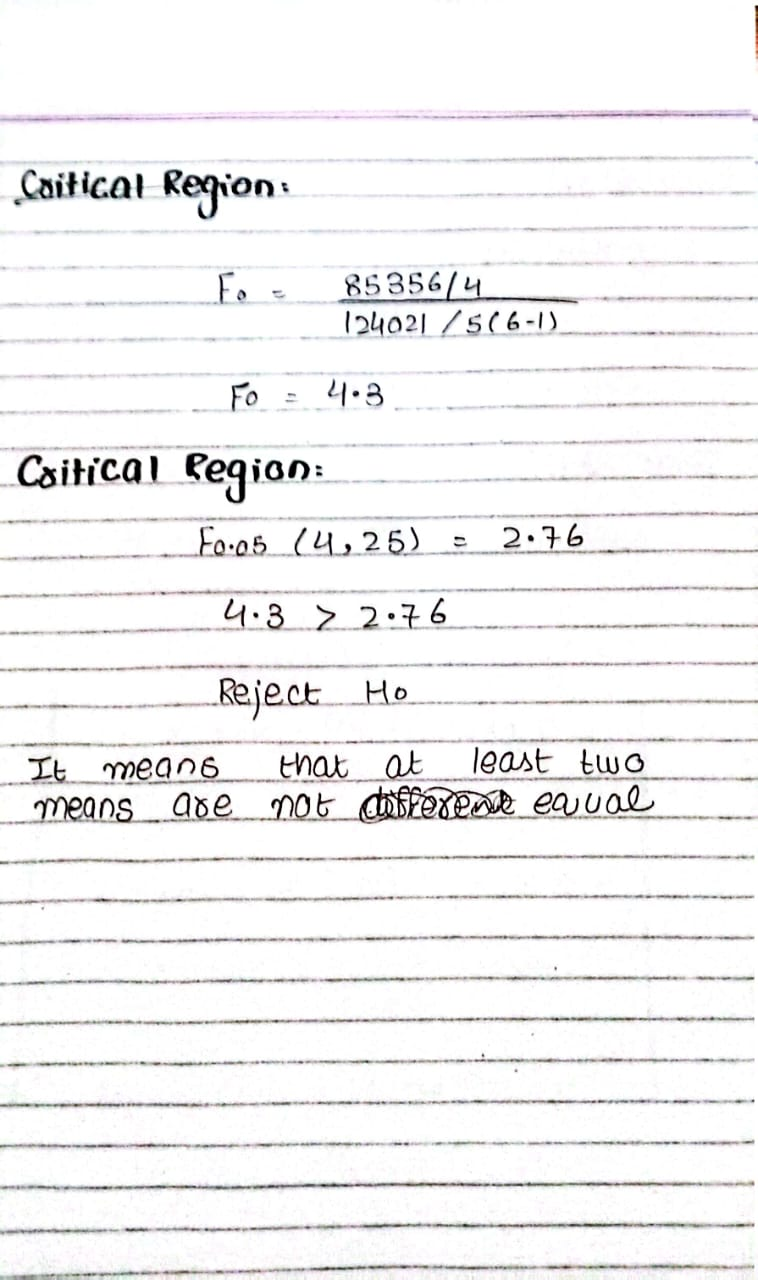 Critical Region:
Fo = 85356/4
124021 / 5(6-1)
Fo = 4.3
Critical Region:
F0.05 (4,25) = 2.76
4.3 > 2.76
Reject Ho
It means that at least two
means are not different equal